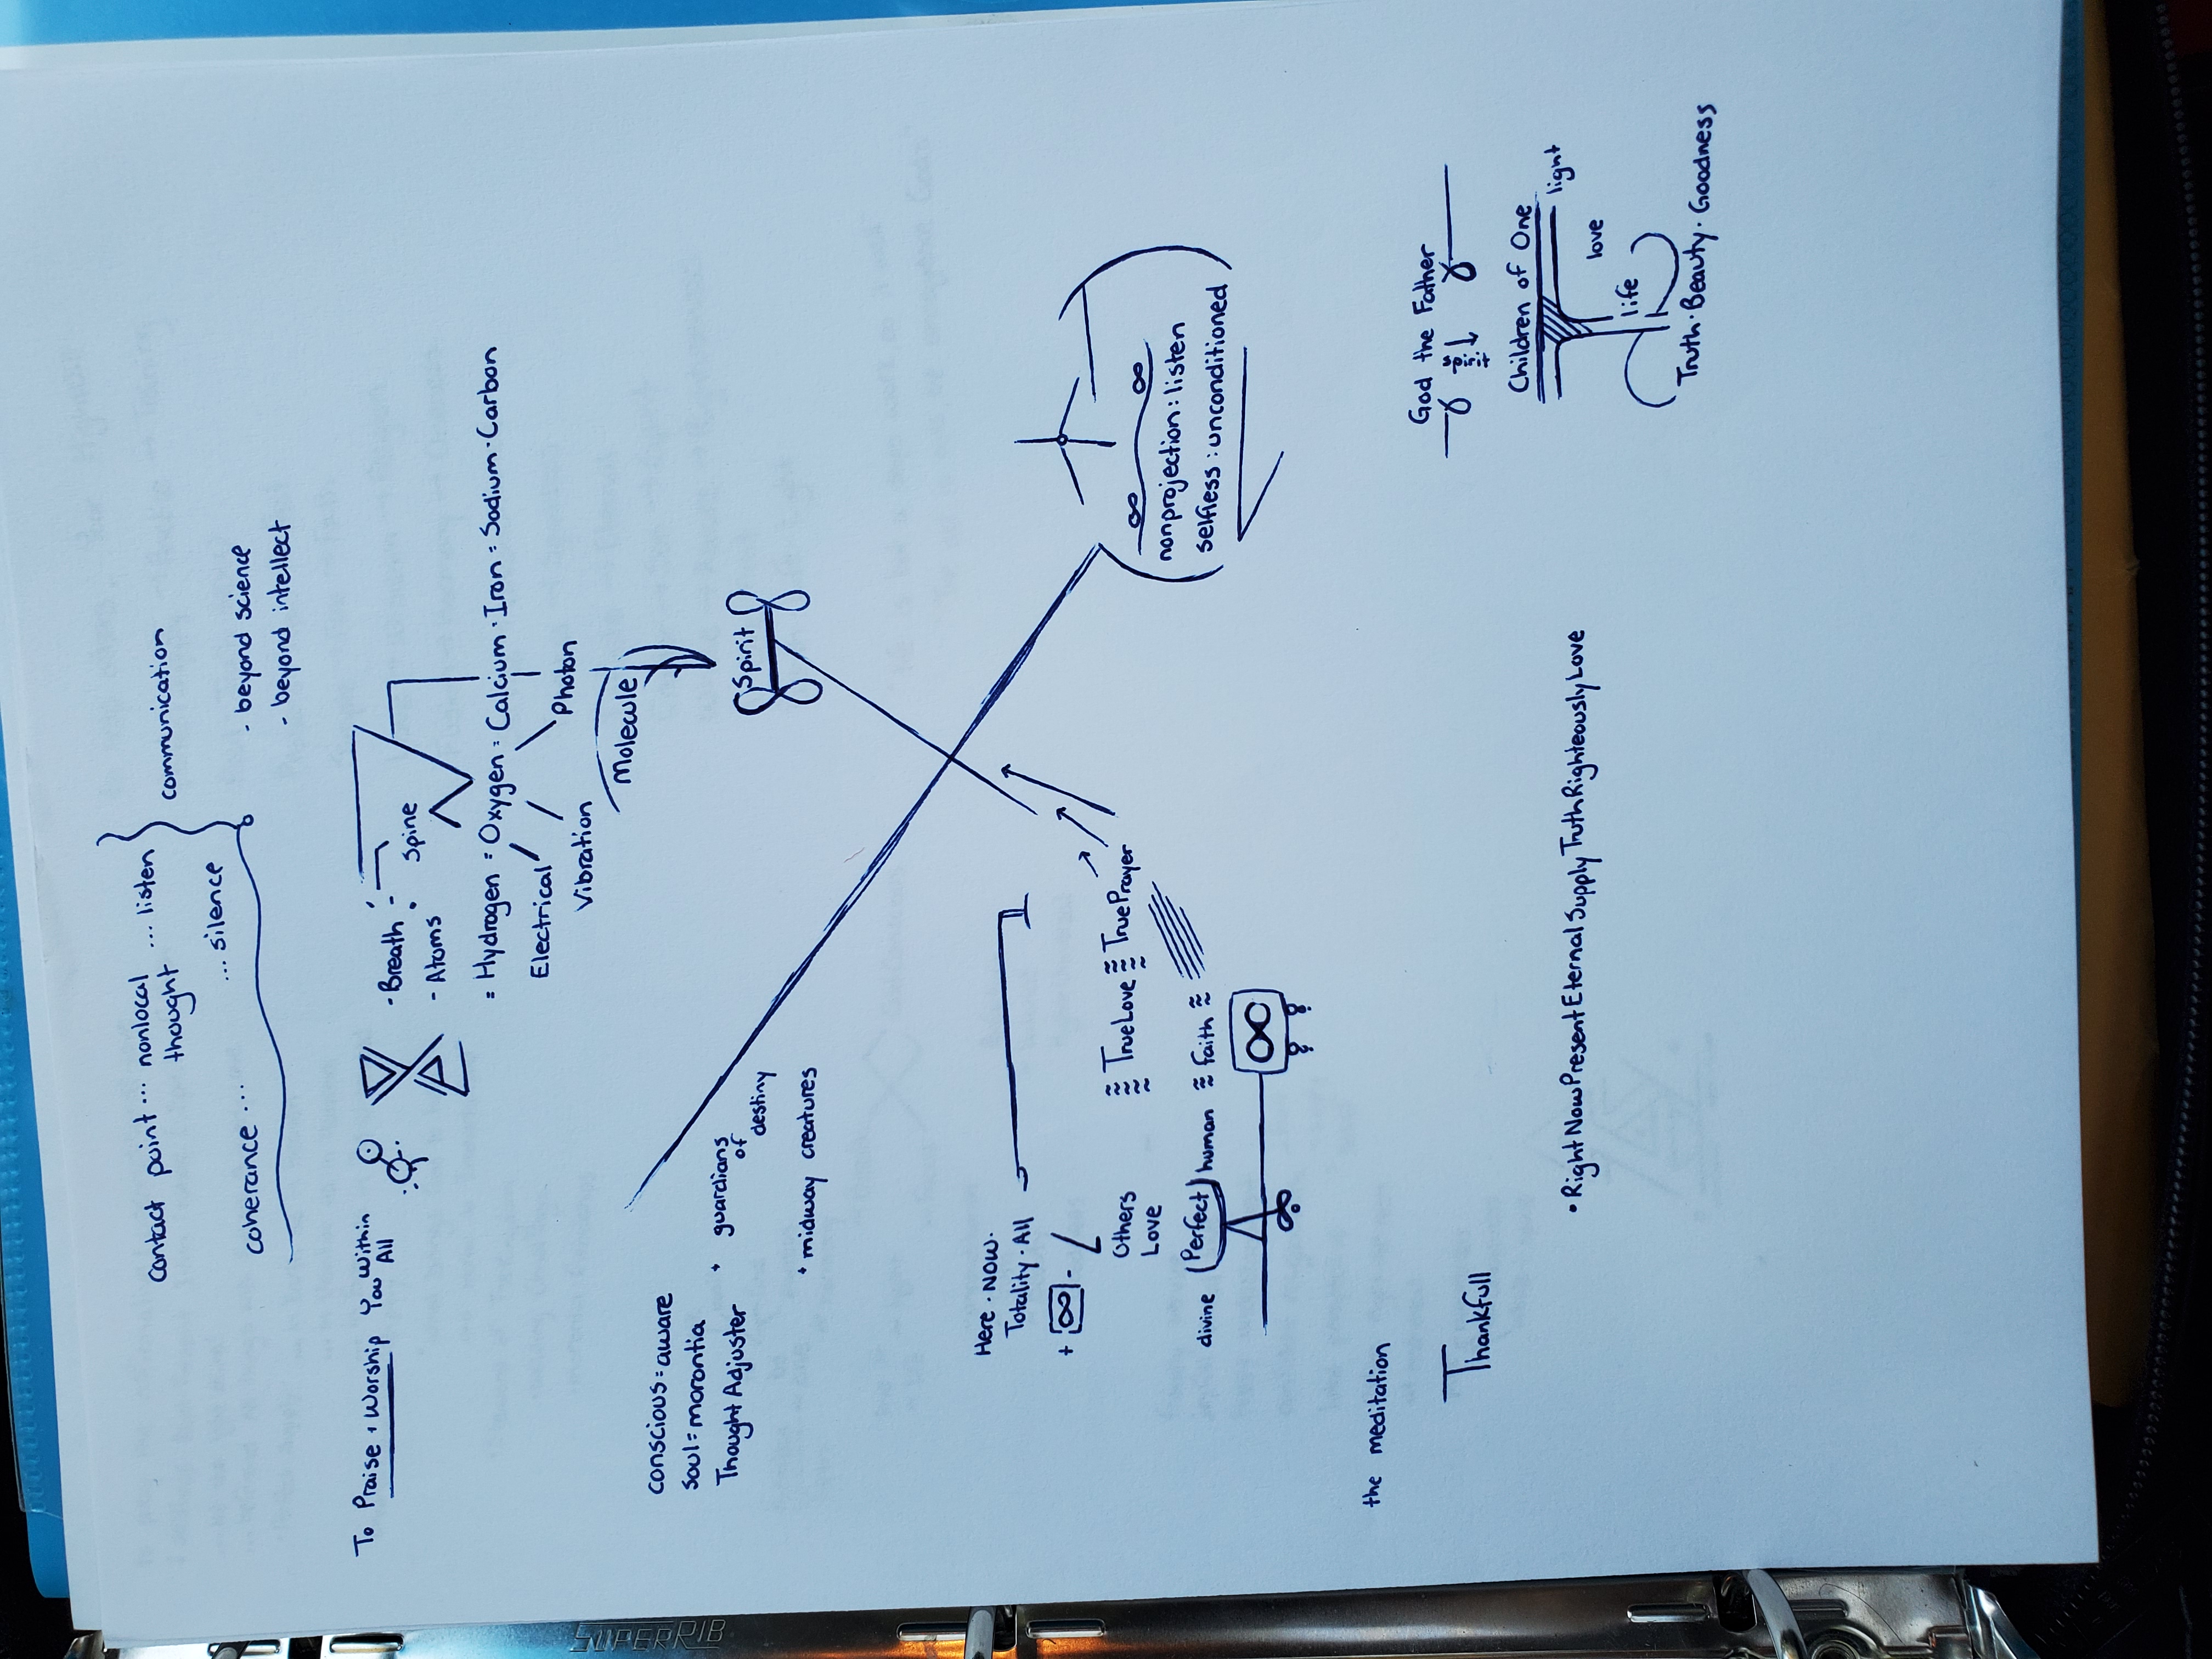 contact point... nonlocal ... listen
thought
communication
... silence
coherance ....
- beyond science
- beyond intellect
To Praise + Worship You Within
All
- Breath
Spine
- Atoms
= Hydrogen = Oxygen = Calcium · Iron = Sodium · Carbon
Electrical
Photon
Vibration
Molecule
Spirit
conscious = aware
soul = morontia
Thought Adjuster
+ guardians
of
destiny
+ midway creatures
Here · NOW ·
Totality · All
+ ∞ -
Others
Love
≈ TrueLove ≈ TruePrayer
divine (Perfect) human ≈ faith ≈
∞
∞ ∞
nonprojection: listen
selfless: unconditioned
the meditation
Thankfull
God the Father
Children of One
light
love
life
Truth · Beauty · Goodness
• Right Now Present Eternal Supply Truth Righteously Love
SUPERRIB